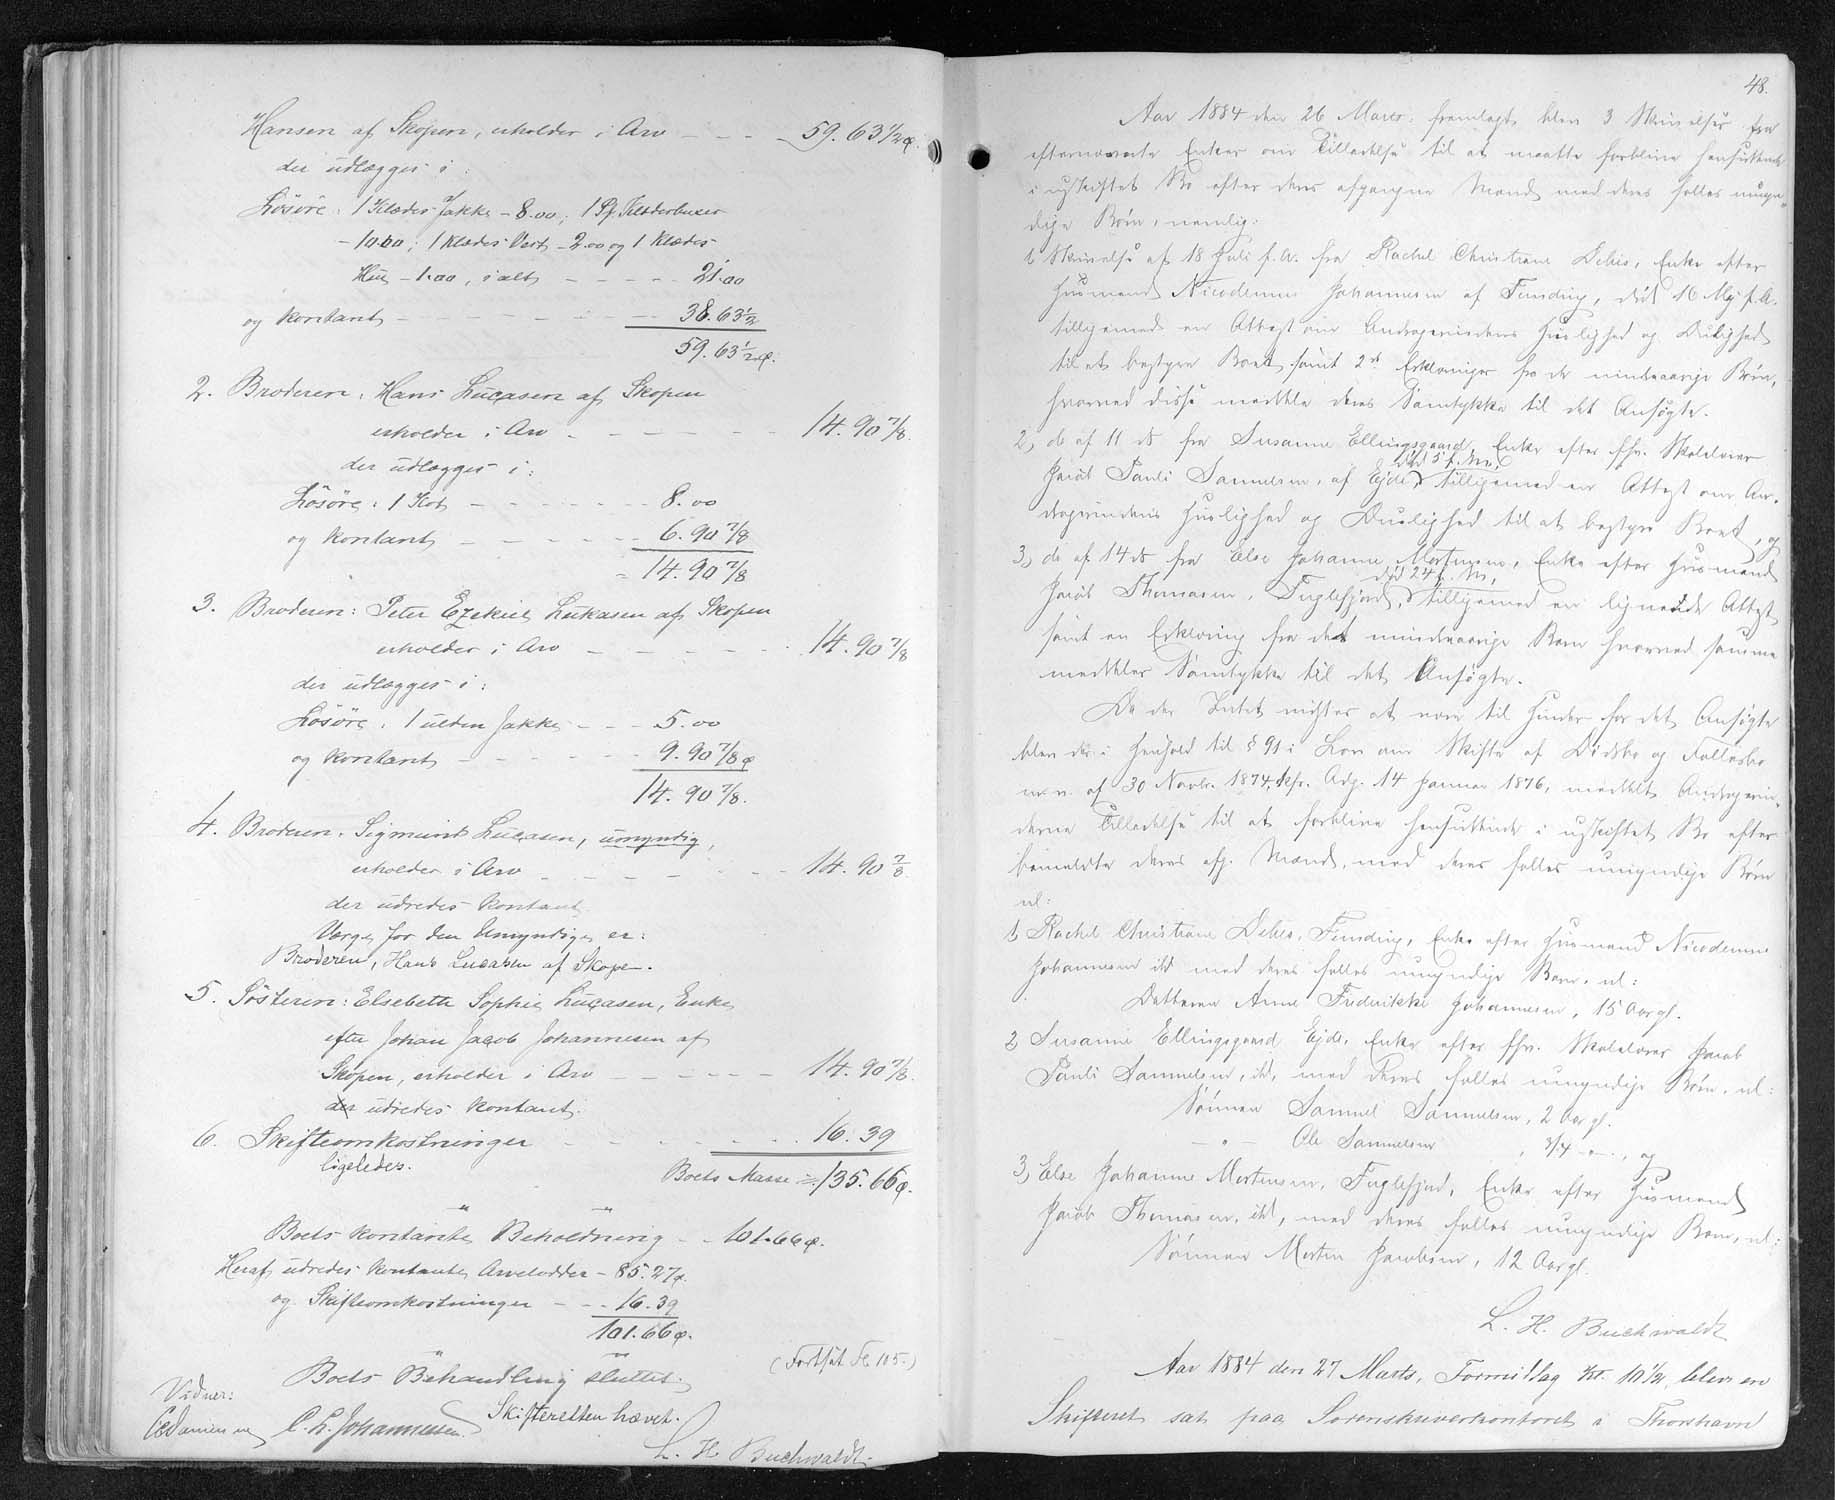 Hansen af Skopen, erholder i Arv - - - 59.63 1/2 ø.
der udlægges i:
Løsøre: 1 Klædes Jakke - 8.00; 1 P. Klædesbuxer
- 10.00; 1 Klædes Vest - 2.00 og 1 Klædes
Hue - 1.00, i alt - - - - 21.00
og kontant - - - - 38.63 1/2
59.63 1/2 ø.
2. Broderen: Hans Lucasen af Skopen
erholder i Arv - - - - 14.90 7/8.
der udlægges i:
Løsøre: 1 Kob - - - - 8.00
og kontant - - - - 6.90 7/8
= 14.90 7/8
3. Broderen: Peter Ezekiel Lukasen af Skopen
erholder i Arv - - - - 14.90 7/8
der udlægges i:
Løsøre: 1 ulden Jakke - - - 5.00
og kontant - - - - 9.90 7/8 ø
14.90 7/8.
4. Broderen: Sigmund Lucasen, umyndig,
erholder i Arv - - - - 14.90 7/8
der udredes kontant.
Værge for den Umyndige er:
Broderen, Hans Lucasen af Skopen.
5. Søsteren: Elsebeth Sophie Lucasen, Enke
efter Johan Jacob Johannesen af
Skopen, erholder i Arv - - - - 14.90 7/8.
der udredes kontant.
6. Skifteomkostninger - - - - 16.39
ligeledes.
Boets Masse = 135.66 ø.
Boets kontante Beholdning - - 101.66 ø.
Heraf udredes kontante Arvelodder - 85.27 ø.
og Skifteomkostninger - - - 16.39
101.66 ø.
(Fortsat Fo 105.)
Boets Behandling sluttet.
Skifteretten hævet.
Vidner:
C. L. Johannesen
L. H. Buchwaldt.
48.
Aar 1884 den 26 Marts: fremlagt blev 3 Skrivelser fra
efternævnte Enker om Tilladelse til at maatte forblive hensiddende
i uskiftet Bo efter deres afgangne Mænd med deres fælles umyn-
dige Børn, nemlig:
1) Skrivelse af 18 Juli f. A. fra Rachel Christiane Debes, Enke efter
Husmand Nicodemus Johannesen af Funding, død 16 Maj f. A.
tilligemed en Attest om Andragerindens Huslighed og Duelighed
til at bestyre Boet samt 2de Erklæringer fra de mindreaarige Børn,
hvorved disse meddele deres Samtykke til det Ansøgte.
2) do af 11 ds fra Susanne Ellingsgaard, Enke efter fhv. Skolelærer
død 5 f. M.
Jacob Pauli Samuelsen, af Ejde, tilligemed en Attest om An-
dragerindens Huslighed og Duelighed til at bestyre Boet, og
3) do af 14 ds fra Else Johanne Mortensen, Enke efter Husmand
død 24 f. M.,
Jacob Thomasen, Fuglefjord, tilligemed en lignende Attest
samt en Erklæring fra det mindreaarige Barn hvorved samme
meddeler Samtykke til det Ansøgte.
Da der Intet vidstes at være til Hinder for det Ansøgte
blev der i Henhold til § 91 i Lov om Skifte af Dødsbo og Fællesbo
m. v. af 30 Novbr. 1874, kfr. Adg. 14 Januar 1876, meddelt Andragerin-
derne Tilladelse til at forblive hensiddende i uskiftet Bo efter
bemeldte deres afg. Mænd, med deres fælles umyndige Børn
nl:
1) Rachel Christiane Debes, Funding, Enke efter Husmand Nicodemus
Johannesen ibd med deres fælles umyndige Barn, nl:
Datteren Anne Fredrikke Johannesen, 15 Aar gl.
2) Susanne Ellingsgaard, Ejde, Enke efter fhv. Skolelærer Jacob
Pauli Samuelsen, ibd, med deres fælles umyndige Børn, nl:
Sønnen Samuel Samuelsen, 2 Aar gl.
- " - Ole Samuelsen, 3/4 - " - , og
3) Else Johanne Mortensen, Fuglefjord, Enke efter Husmand
Jacob Thomasen, ibd, med deres fælles umyndige Barn, nl:
Sønnen Morten Jacobsen, 12 Aar gl.
L. H. Buchwaldt
Aar 1884 den 27 Marts, Formiddag Kl. 10 1/2, blev en
Skifteret sat paa Sorenskriverkontoret i Thorshavn